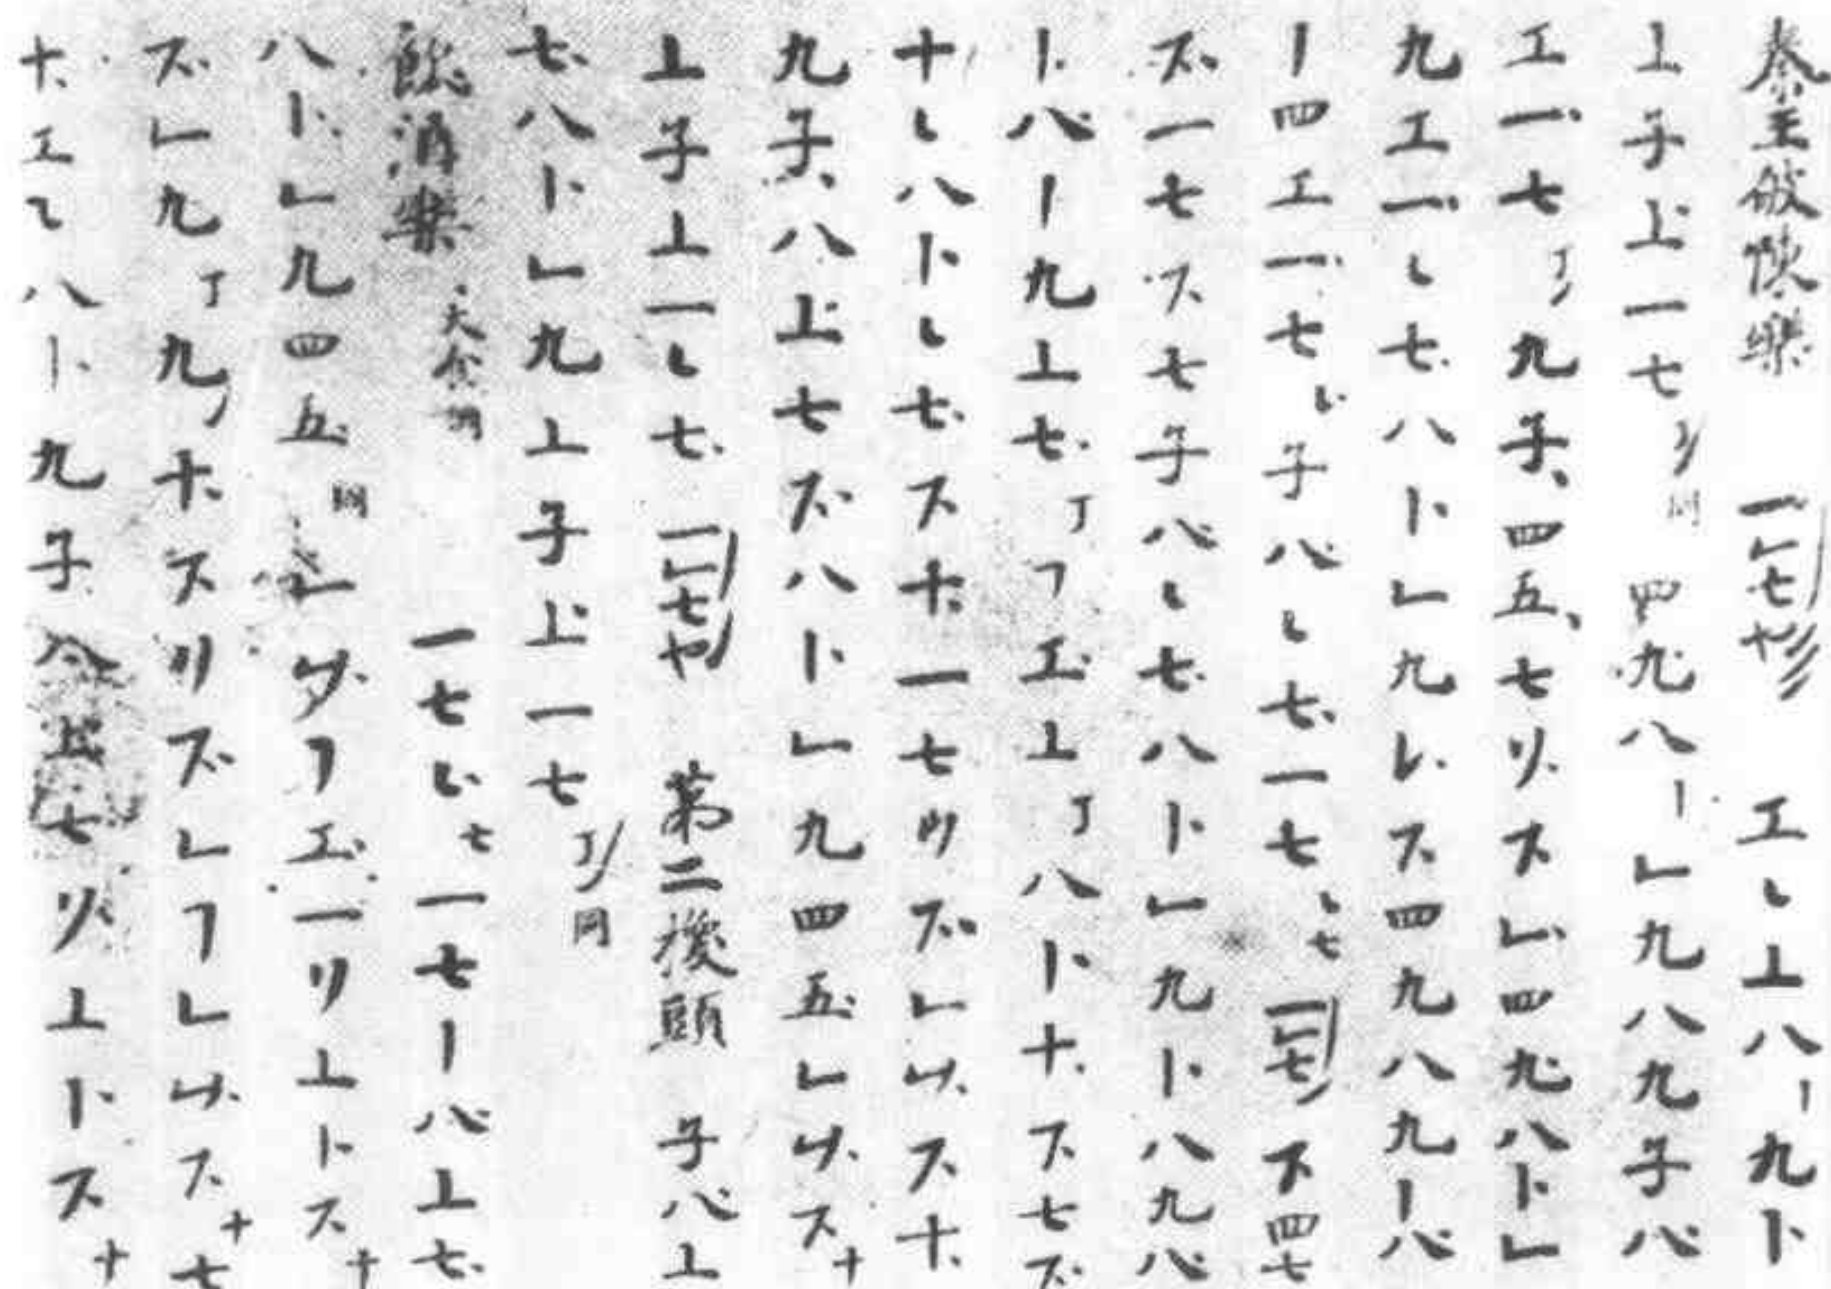 秦王破陣樂 一乚七や 工乚上八丨九卜
上子上一七 同 四九八丨乚九八九子八
工一七丁九子、四五、七リス乚四九八卜乚
九工一乚七八卜乚九レス四九八九丨八
丨四工一七乚子八乚七一七乚七 一乚七 ス四七
ス一七ス七子八乚七八卜乚九卜八九八
卜八丨九上七丁フ工上丁八卜十ス七ス
十乚八卜乚七ス十一七リス乚ムス十
九子、八上七ス八卜乚九四五乚ムス十
上子上一乚七 一乚七や 第二換頭 子八上
七八卜乚九上子上一七丁同
飲酒樂 大食調 一七乚七一七丨八上七
八卜乚九四五 同 乚ムフ工一リ上卜ス十
ス乚九丁九十スリス乚フ乚ムス十七
十工乚八卜九子八上七リ上卜ス十